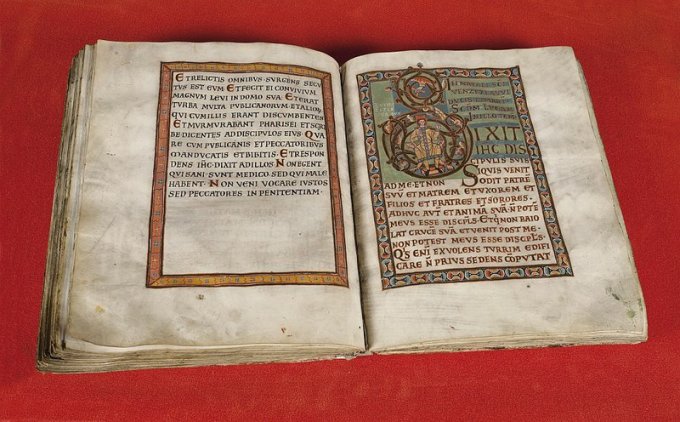 ET RELICTIS OMNIBUS· SURGENS SECU
TUS EST EUM ET FECIT EI CONVIVIUM
MAGNUM LEVI IN DOMO SUA ET ERAT
TURBA MULTA PUBLICANORUM ET ALIOR
QUI CUM ILLIS ERANT DISCUMBENTES
ET MURMURABANT PHARISEI ET SCRI
BE DICENTES AD DISCIPULOS EIUS QUA
RE CUM PUBLICANIS ET PECCATORIBUS
MANDUCATIS ET BIBITIS. ET RESPON
DENS IHC· DIXIT AD ILLOS NON EGENT
QUI SANI SUNT MEDICO SED QUI MALE
HABENT. NON VENI VOCARE IUSTOS
SED PECCATORES IN PENITENTIAM.
IN NATALI SCI
DUCIS
IN ILLO TEMP
DIXIT
IHC DIS
CIPULIS SUIS
SIQUIS VENIT
AD ME ET NON ODIT PATRE
SUU ET MATREM ET UXOREM ET
FILIOS ET FRATRES ET SORORES.
ADHUC AUT ET ANIMA SUA N POTE
MEUS ESSE DISCPLS. ET Q NON BAIO
LAT CRUCE SUA ET VENIT POST ME.
NON POTEST MEUS ESSE DISCPLS.
QS ENI EX VOLENS TURRIM EDIFI
CARE N PRIUS SEDENS COPUTAT